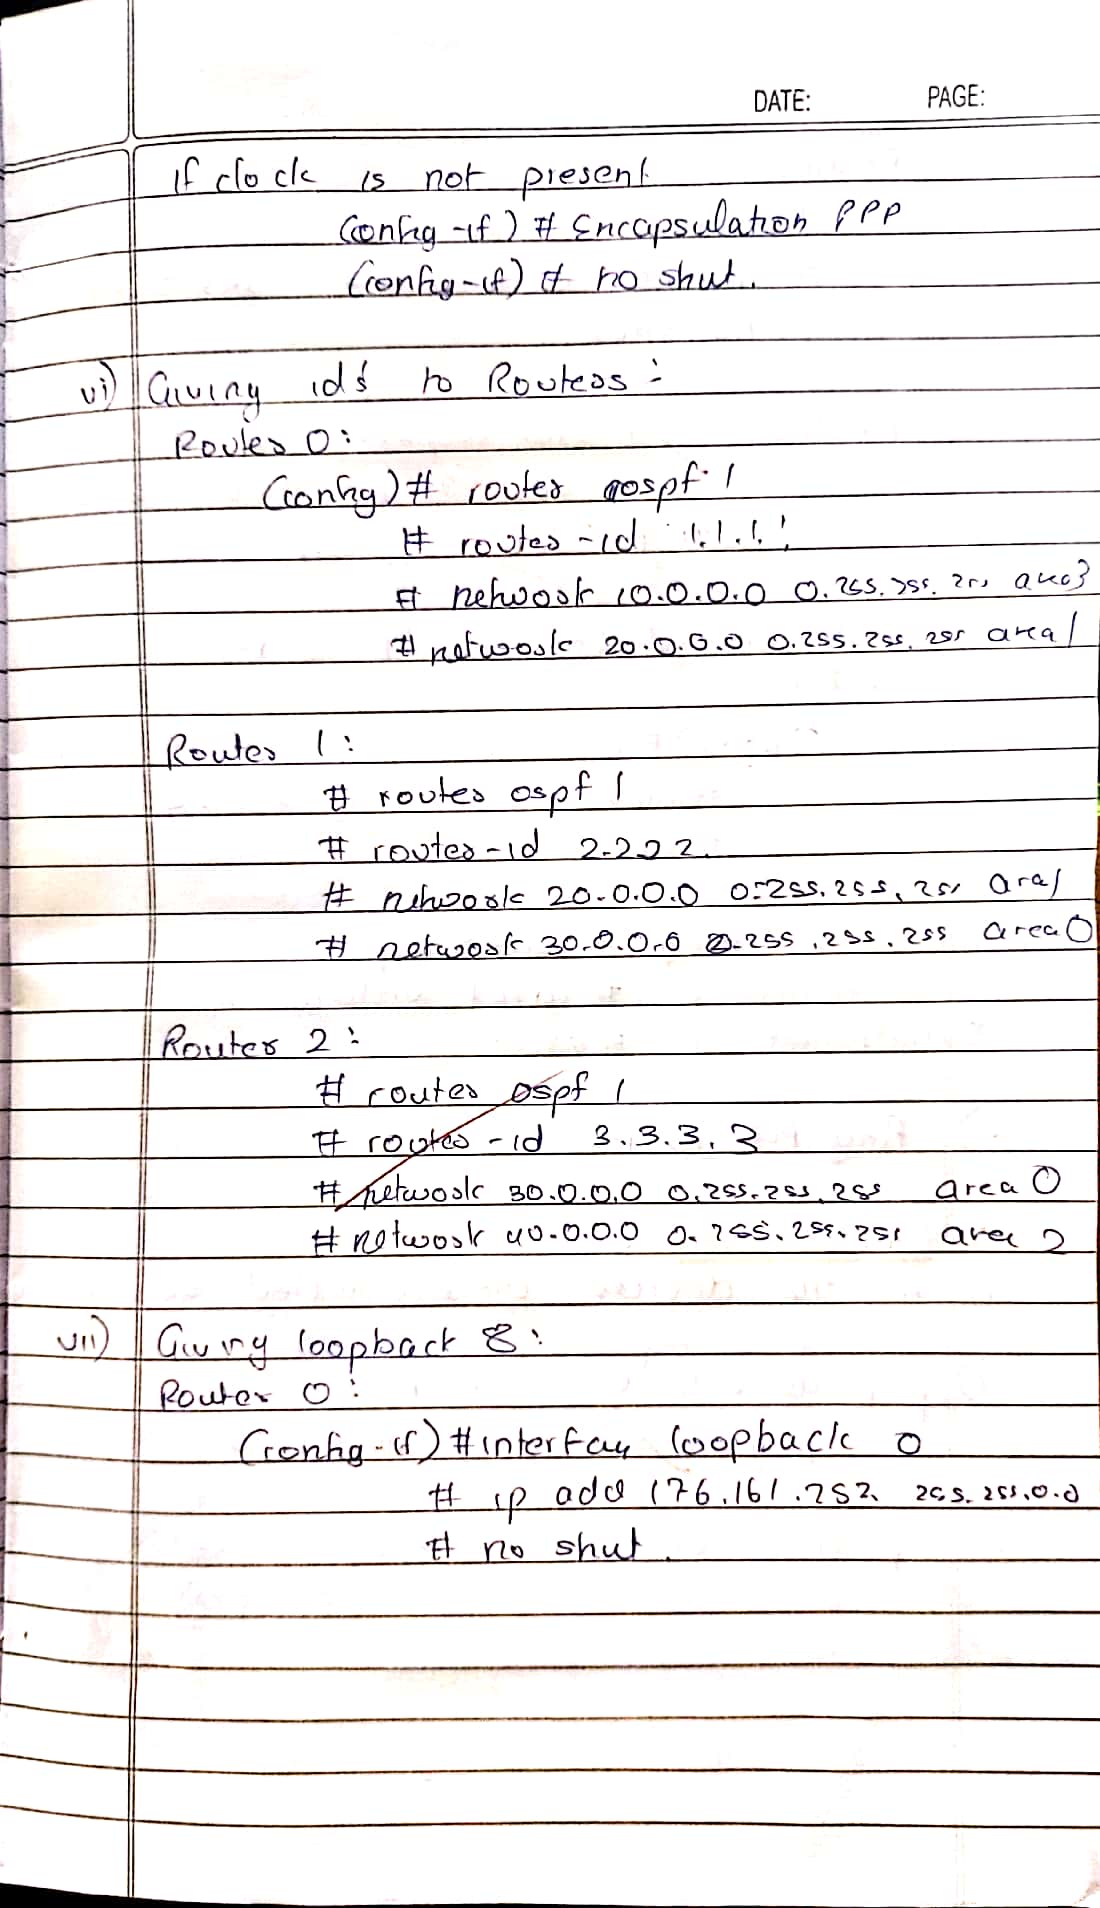 DATE: PAGE:
If clock is not present
(config-if) # Encapsulation PPP
(config-if) # no shut.
vi) Giving id's to Routers :
Router 0:
(config) # router ospf 1
# router-id 1.1.1.1
# network 10.0.0.0 0.255.255.255 area 3
# network 20.0.0.0 0.255.255.255 area 1
Router 1:
# router ospf 1
# router-id 2.2.2.2.
# network 20.0.0.0 0.255.255.255 area 1
# network 30.0.0.0 0.255.255.255 area 0
Router 2:
# router ospf 1
# router-id 3.3.3.3
# network 30.0.0.0 0.255.255.255 area 0
# network 40.0.0.0 0.255.255.255 area 2
vii) Giving loopback 8:
Router 0:
(config-if) # interfay loopback 0
# ip add 176.161.252. 255.255.0.0
# no shut.